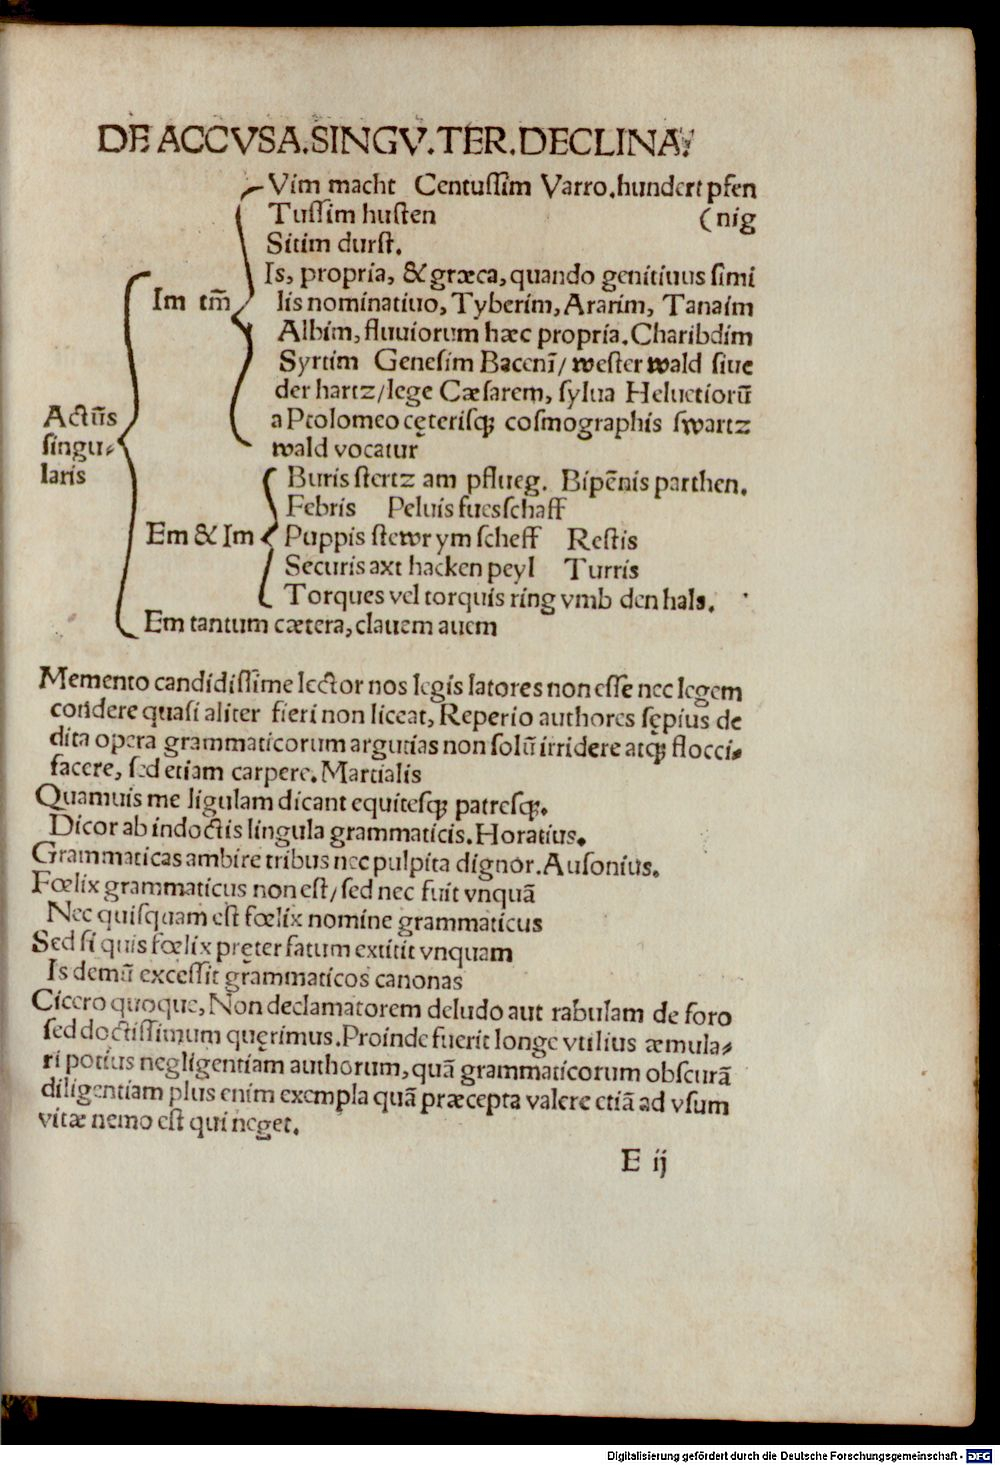 DE ACCVSA.SINGV.TER.DECLINA.
Vim macht Centuſſim Varro.hundert pfen
Tuſſim huſten (nig
Sitim durſt.
Is, propria, & græca, quando genitiuus simi
Im tm̄ lis nominatiuo, Tyberim, Ararim, Tanaim
Albim, fluuiorum hæc propria. Charibdim
Syrtim Geneſim Baceni̅/ weſter wald ſiue
der hartz/lege Cæſarem, ſylua Heluetiorū
Actūs a Ptolomeo cęteriſqꝫ coſmographis ſwartz
ſingu⸗ wald vocatur
laris Buris ſtertz am pflueg. Bipēnis parthen.
Febris Peluis fuesſchaff
Em & Im Puppis ſtewr ym ſcheff Reſtis
Securis axt hacken peyl Turris
Torques vel torquis ring vmb den hals.
Em tantum cætera, clauem auem
Memento candidiſſime lector nos legis latores non eſſe nec legem
condere quaſi aliter fieri non liceat, Reperio authores ſępius de
dita opera grammaticorum argutias non ſolū irridere atqꝫ flocci⸗
facere, ſed etiam carpere. Martialis
Quamuis me ligulam dicant equiteſqꝫ patreſqꝫ.
Dicor ab indoctis lingula grammaticis. Horatius.
Grammaticas ambire tribus nec pulpita dignor. Auſonius.
Fœlix grammaticus non eſt/ ſed nec fuit vnquā
Nec quiſquam eſt fœlix nomine grammaticus
Sed ſi quis fœlix pręter fatum extitit vnquam
Is demū exceſſit grammaticos canonas
Cicero quoque, Non declamatorem deludo aut rabulam de foro
ſed doctiſſimum quęrimus. Proinde fuerit longe vtilius æmula⸗
ri potius negligentiam authorum, quā grammaticorum obſcurā
diligentiam plus enim exempla quā præcepta valere etiā ad vſum
vitæ nemo eſt qui neget.
E ij
Digitalisierung gefördert durch die Deutsche Forschungsgemeinschaft - DFG